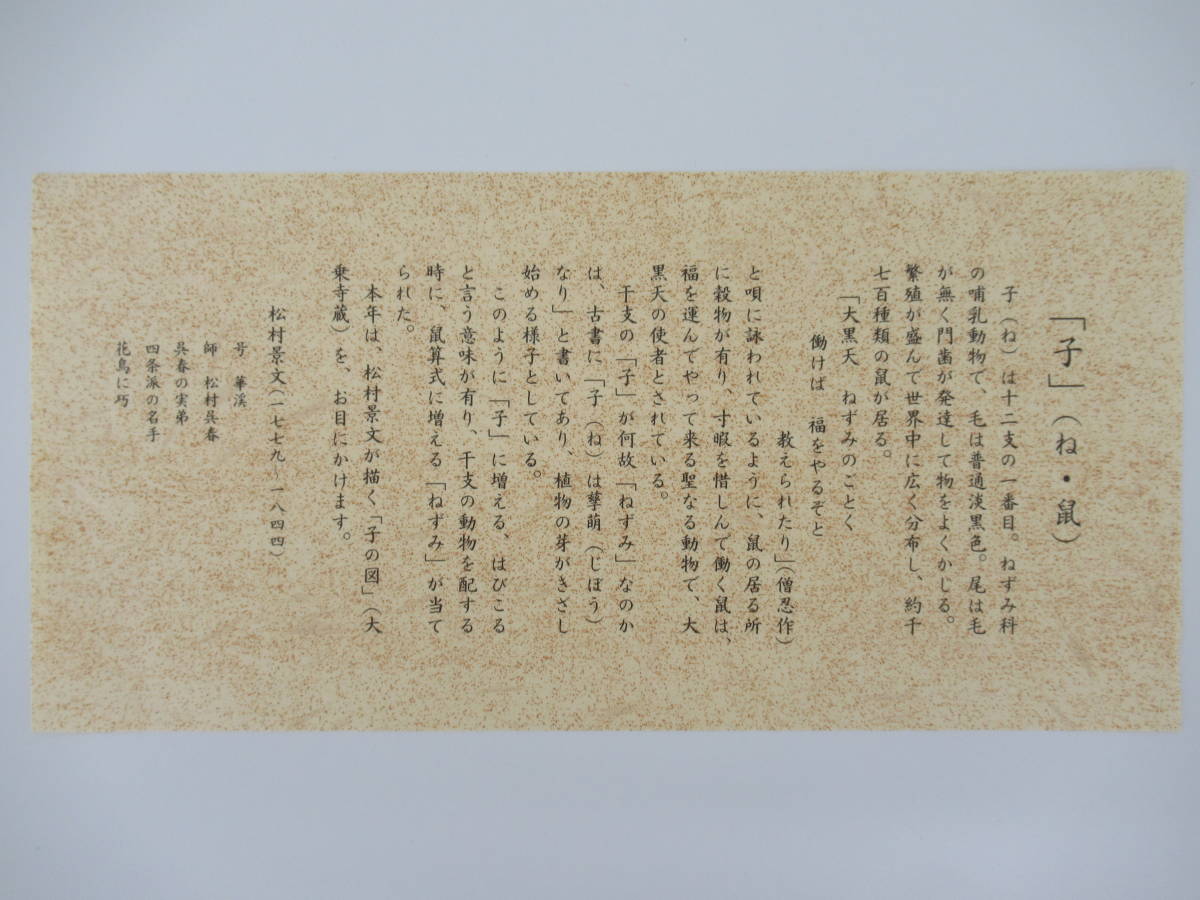 「子」（ね・鼠）
子（ね）は十二支の一番目。ねずみ科
の哺乳動物で、毛は普通淡黒色。尾は毛
が無く門歯が発達して物をよくかじる。
繁殖が盛んで世界中に広く分布し、約千
七百種類の鼠が居る。
「大黒天　ねずみのごとく
働けば　福をやるぞと
教えられたり」（僧忍作）
と唄に詠われているように、鼠の居る所
に穀物が有り、寸暇を惜しんで働く鼠は、
福を運んでやって来る聖なる動物で、大
黒天の使者とされている。
干支の「子」が何故「ねずみ」なのか
は、古書に「子（ね）は孳萌（じぼう）
なり」と書いてあり、植物の芽がきざし
始める様子としている。
このように「子」に増える、はびこる
と言う意味が有り、干支の動物を配する
時に、鼠算式に増える「ねずみ」が当て
られた。
本年は、松村景文が描く「子の図」（大
乗寺蔵）を、お目にかけます。
松村景文（一七七九～一八四四）
号　華渓
師　松村呉春
呉春の実弟
四条派の名手
花鳥に巧